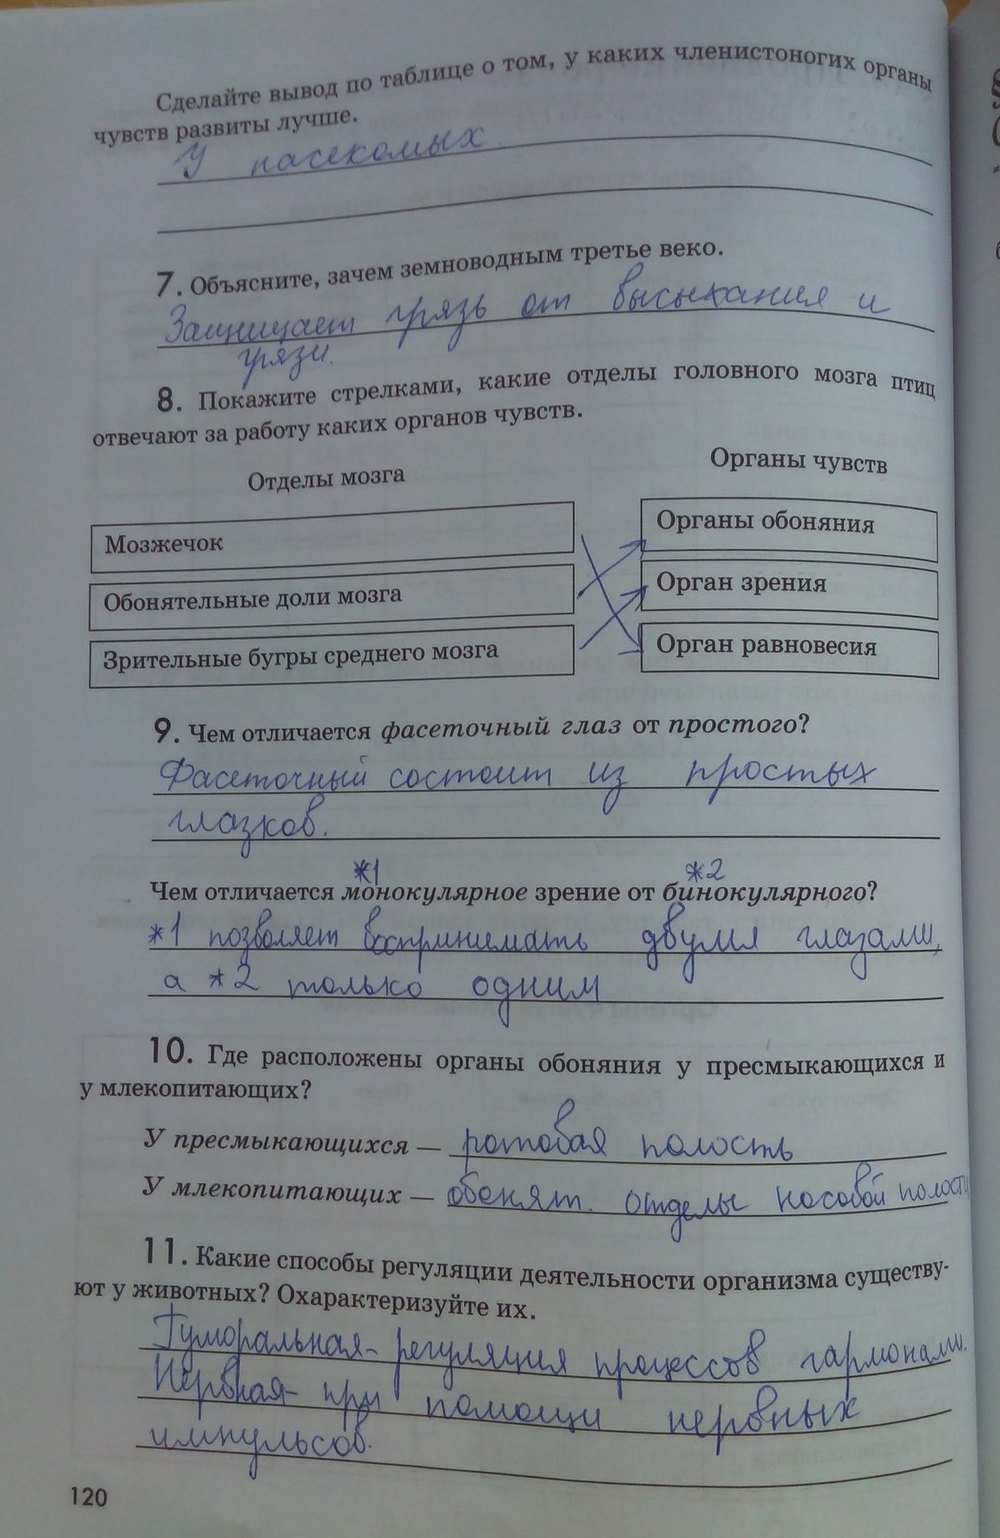 Сделайте вывод по таблице о том, у каких членистоногих органы
чувств развиты лучше.
У насекомых
7. Объясните, зачем земноводным третье веко.
Защищает грязь от высыхания и
грязи.
8. Покажите стрелками, какие отделы головного мозга птиц
отвечают за работу каких органов чувств.
Отделы мозга
Органы чувств
Мозжечок
Органы обоняния
Обонятельные доли мозга
Орган зрения
Зрительные бугры среднего мозга
Орган равновесия
9. Чем отличается фасеточный глаз от простого?
Фасеточный состоит из простых
глазков.
*1 *2
Чем отличается монокулярное зрение от бинокулярного?
*1 позволяет воспринимать двумя глазами,
а *2 только одним
10. Где расположены органы обоняния у пресмыкающихся и
у млекопитающих?
У пресмыкающихся — ротовая полость
У млекопитающих — обонят. отделы носовой полости
11. Какие способы регуляции деятельности организма существу-
ют у животных? Охарактеризуйте их.
Гуморальная - регуляция процессов гармонами.
Нервная - при помощи нервных
импульсов.
120